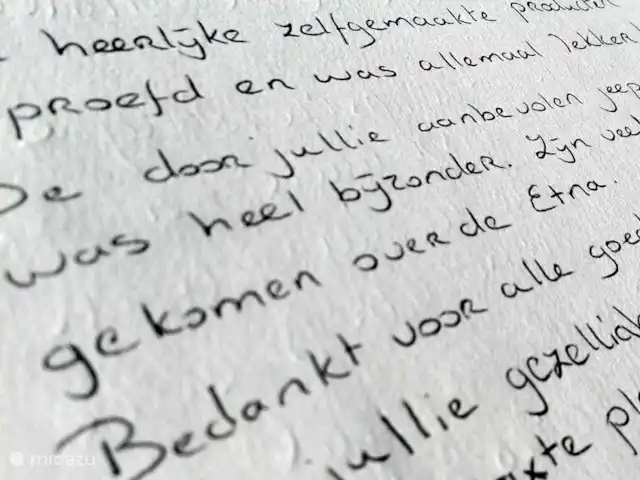 heerlijke zelfgemaakte producten
proefd en was allemaal lekker!
De door jullie aanbevolen jeep
was heel bijzonder. Zijn veel
gekomen over de Etna.
Bedankt voor alle goe
jullie gezellig
micazu